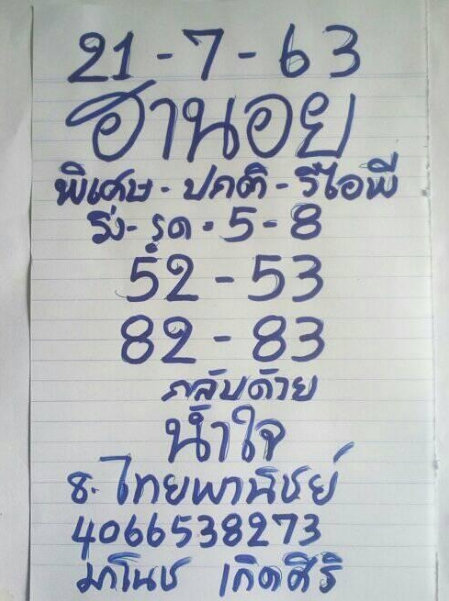 21-7-63
ฮานอย
พิเศษ-ปกติ-วีไอพี
วิ่ง-รูด-5-8
52-53
82-83
กลับด้วย
น้ำใจ
ธ.ไทยพานิชย์
4066538273
มาโนช เกิดศิริ